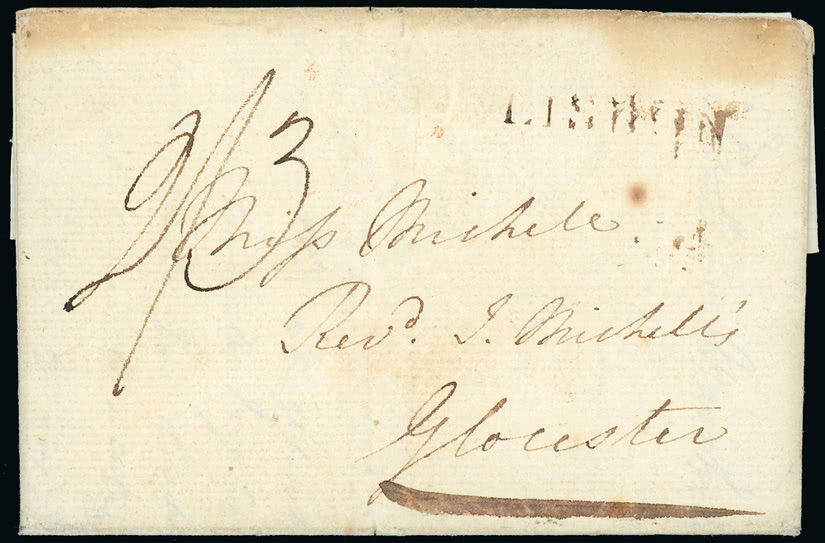 LISBON
2/3
Miss Michell.
Revd. J. Michell's
Glocester